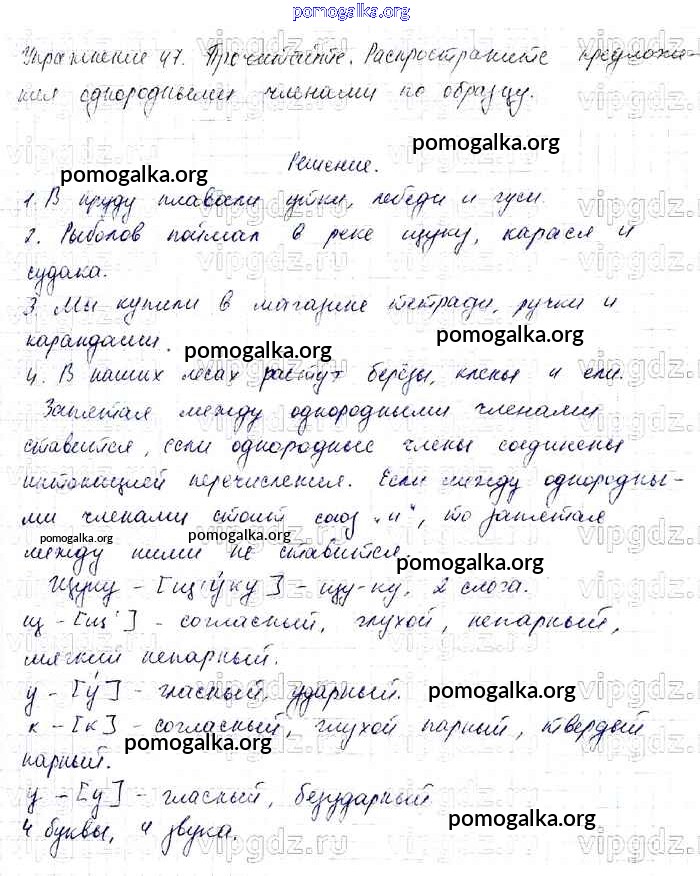 pomogalka.org
Упражнение 47. Прочитайте. Распространите предложе-
ния однородными членами по образцу.
pomogalka.org
Решение.
pomogalka.org
1. В пруду плавали утки, лебеди и гуси.
2. Рыболов поймал в реке щуку, карася и
судака.
3. Мы купили в магазине тетради, ручки и
pomogalka.org
карандаши.
pomogalka.org
4. В наших лесах растут берёзы, клены и ели.
Запятая между однородными членами
ставится, если однородные члены соединены
интонацией перечисления. Если между однородны-
ми членами стоит союз "и", то запятая
pomogalka.org pomogalka.org
между ними не ставится.
pomogalka.org
Щуку - [щ'уку] - щу-ку, 2 слога.
щ - [щ'] - согласный, глухой, непарный,
мягкий непарный.
у - [у́] - гласный, ударный.
pomogalka.org
к - [к] - согласный, глухой парный, твердый
pomogalka.org
парный.
у - [у] - гласный, безударный
4 буквы, 4 звука.
pomogalka.org
vipgdz.ru